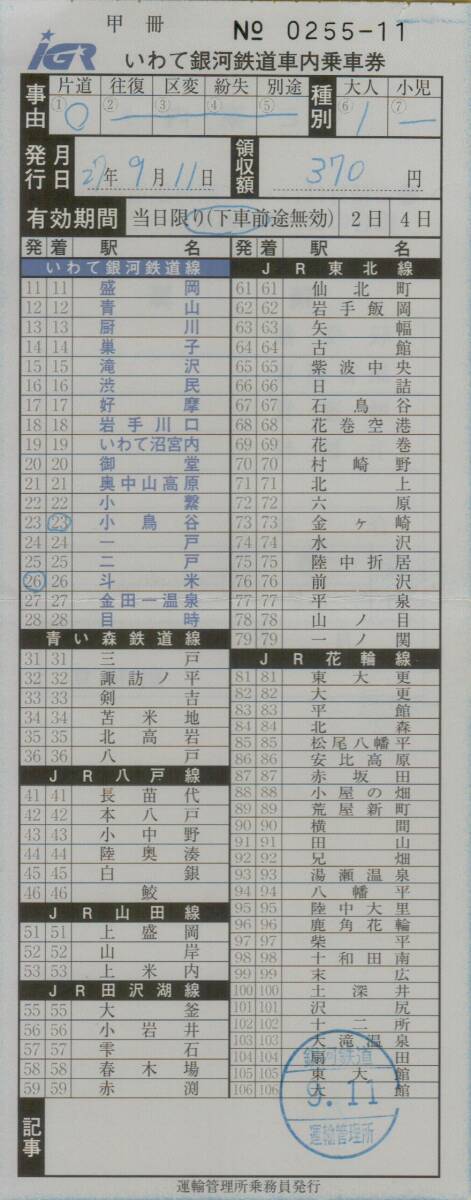 甲 冊 № 0255-11
IGR いわて銀河鉄道車内乗車券
事由 片道 往復 区変 紛失 別途 種別 大人 小児
① 0 ② ③ ④ ⑤ ⑥ 1 ⑦ ー
発行 月日 27年 9月11日 領収額 370 円
有効期間 当日限り(下車前途無効) 2日 4日
発 着 駅 名
いわて銀河鉄道線
11 11 盛岡
12 12 青山
13 13 厨川
14 14 巣子
15 15 滝沢
16 16 渋民
17 17 好摩
18 18 岩手川口
19 19 いわて沼宮内
20 20 御堂
21 21 奥中山高原
22 22 小繋
23 23 小鳥谷
24 24 一戸
25 25 二戸
26 26 斗米
27 27 金田一温泉
28 28 目時
青い森鉄道線
31 31 三戸
32 32 諏訪ノ平
33 33 剣吉
34 34 苫米地
35 35 北高岩
36 36 八戸
JR八戸線
41 41 長苗代
42 42 本八戸
43 43 小中野
44 44 陸奥湊
45 45 白銀
46 46 鮫
JR山田線
51 51 上盛岡
52 52 山岸
53 53 上米内
JR田沢湖線
55 55 大釜
56 56 小岩井
57 57 雫石
58 58 春木場
59 59 赤渕
発 着 駅 名
JR東北線
61 61 仙北町
62 62 岩手飯岡
63 63 矢幅
64 64 古館
65 65 紫波中央
66 66 日詰
67 67 石鳥谷
68 68 花巻空港
69 69 花巻
70 70 村崎野
71 71 北上
72 72 六原
73 73 金ヶ崎
74 74 水沢
75 75 陸中折居
76 76 前沢
77 77 平泉
78 78 山ノ目
79 79 一ノ関
JR花輪線
81 81 東大更
82 82 大更
83 83 平館
84 84 北森
85 85 松尾八幡平
86 86 安比高原
87 87 赤坂田
88 88 小屋の畑
89 89 荒屋新町
90 90 横間
91 91 田山
92 92 兄畑
93 93 湯瀬温泉
94 94 八幡平
95 95 陸中大里
96 96 鹿角花輪
97 97 柴平
98 98 十和田南
99 99 末広
100 100 土深井
101 101 沢尻
102 102 十二所
103 103 大滝温泉
104 104 扇田
105 105 東大館
106 106 大館
銀河鉄道
9.11
運輸管理所
記事
運輸管理所乗務員発行